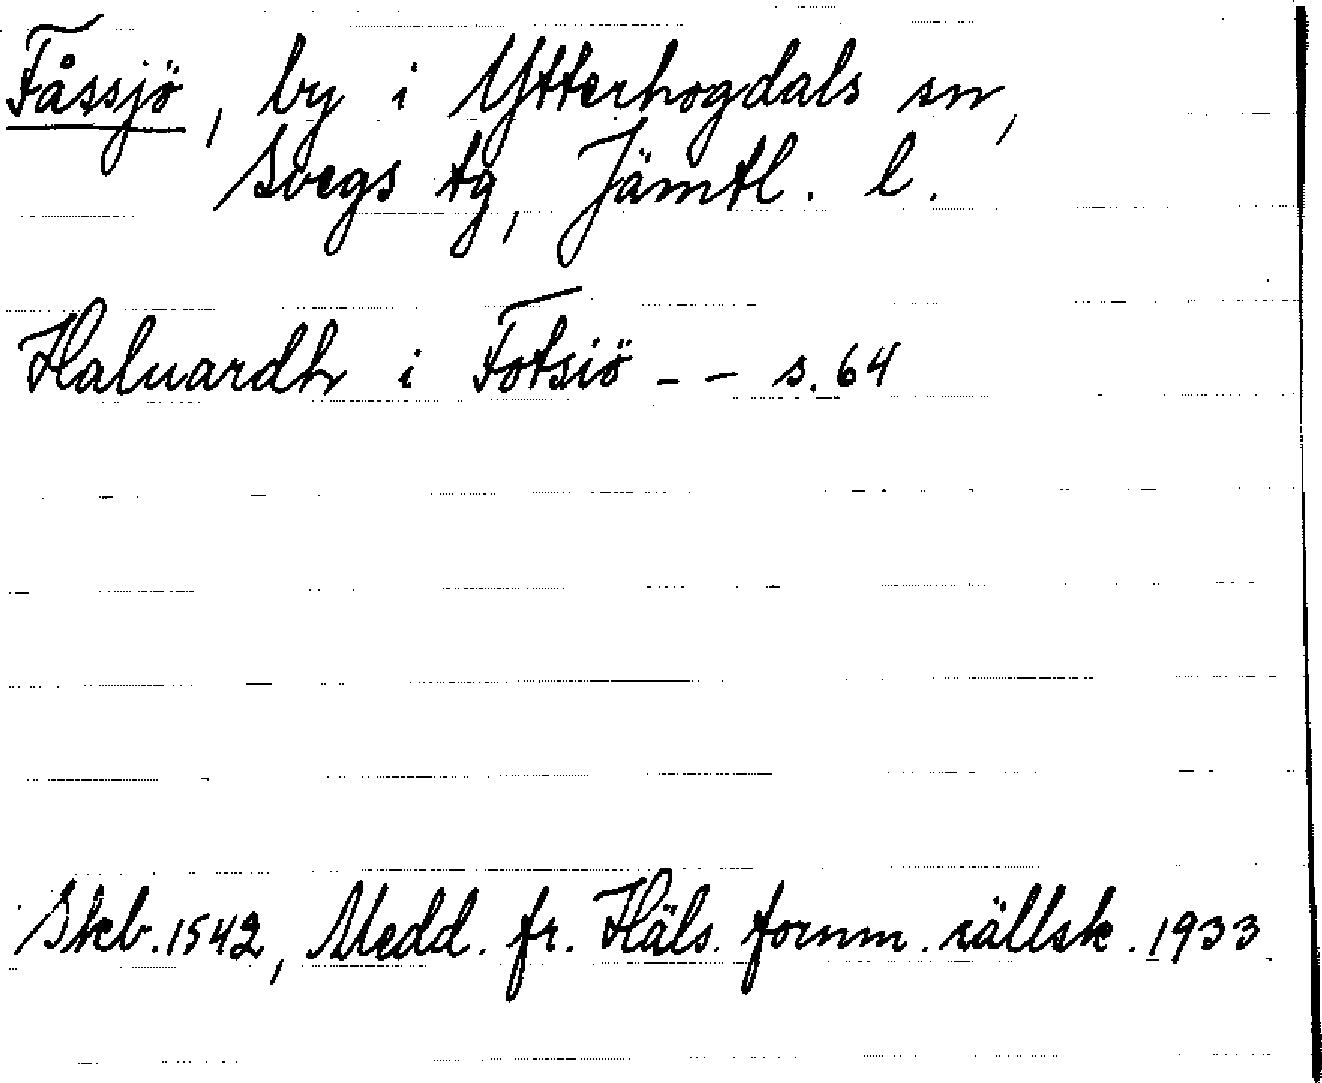 Fåssjö, by i Ytterhogdals sn,
Svegs tg, Jämtl. l.
Haluardh i Fotsiö - - s. 64
Skb. 1542, Medd. fr. Häls. fornm. sällsk. 1933